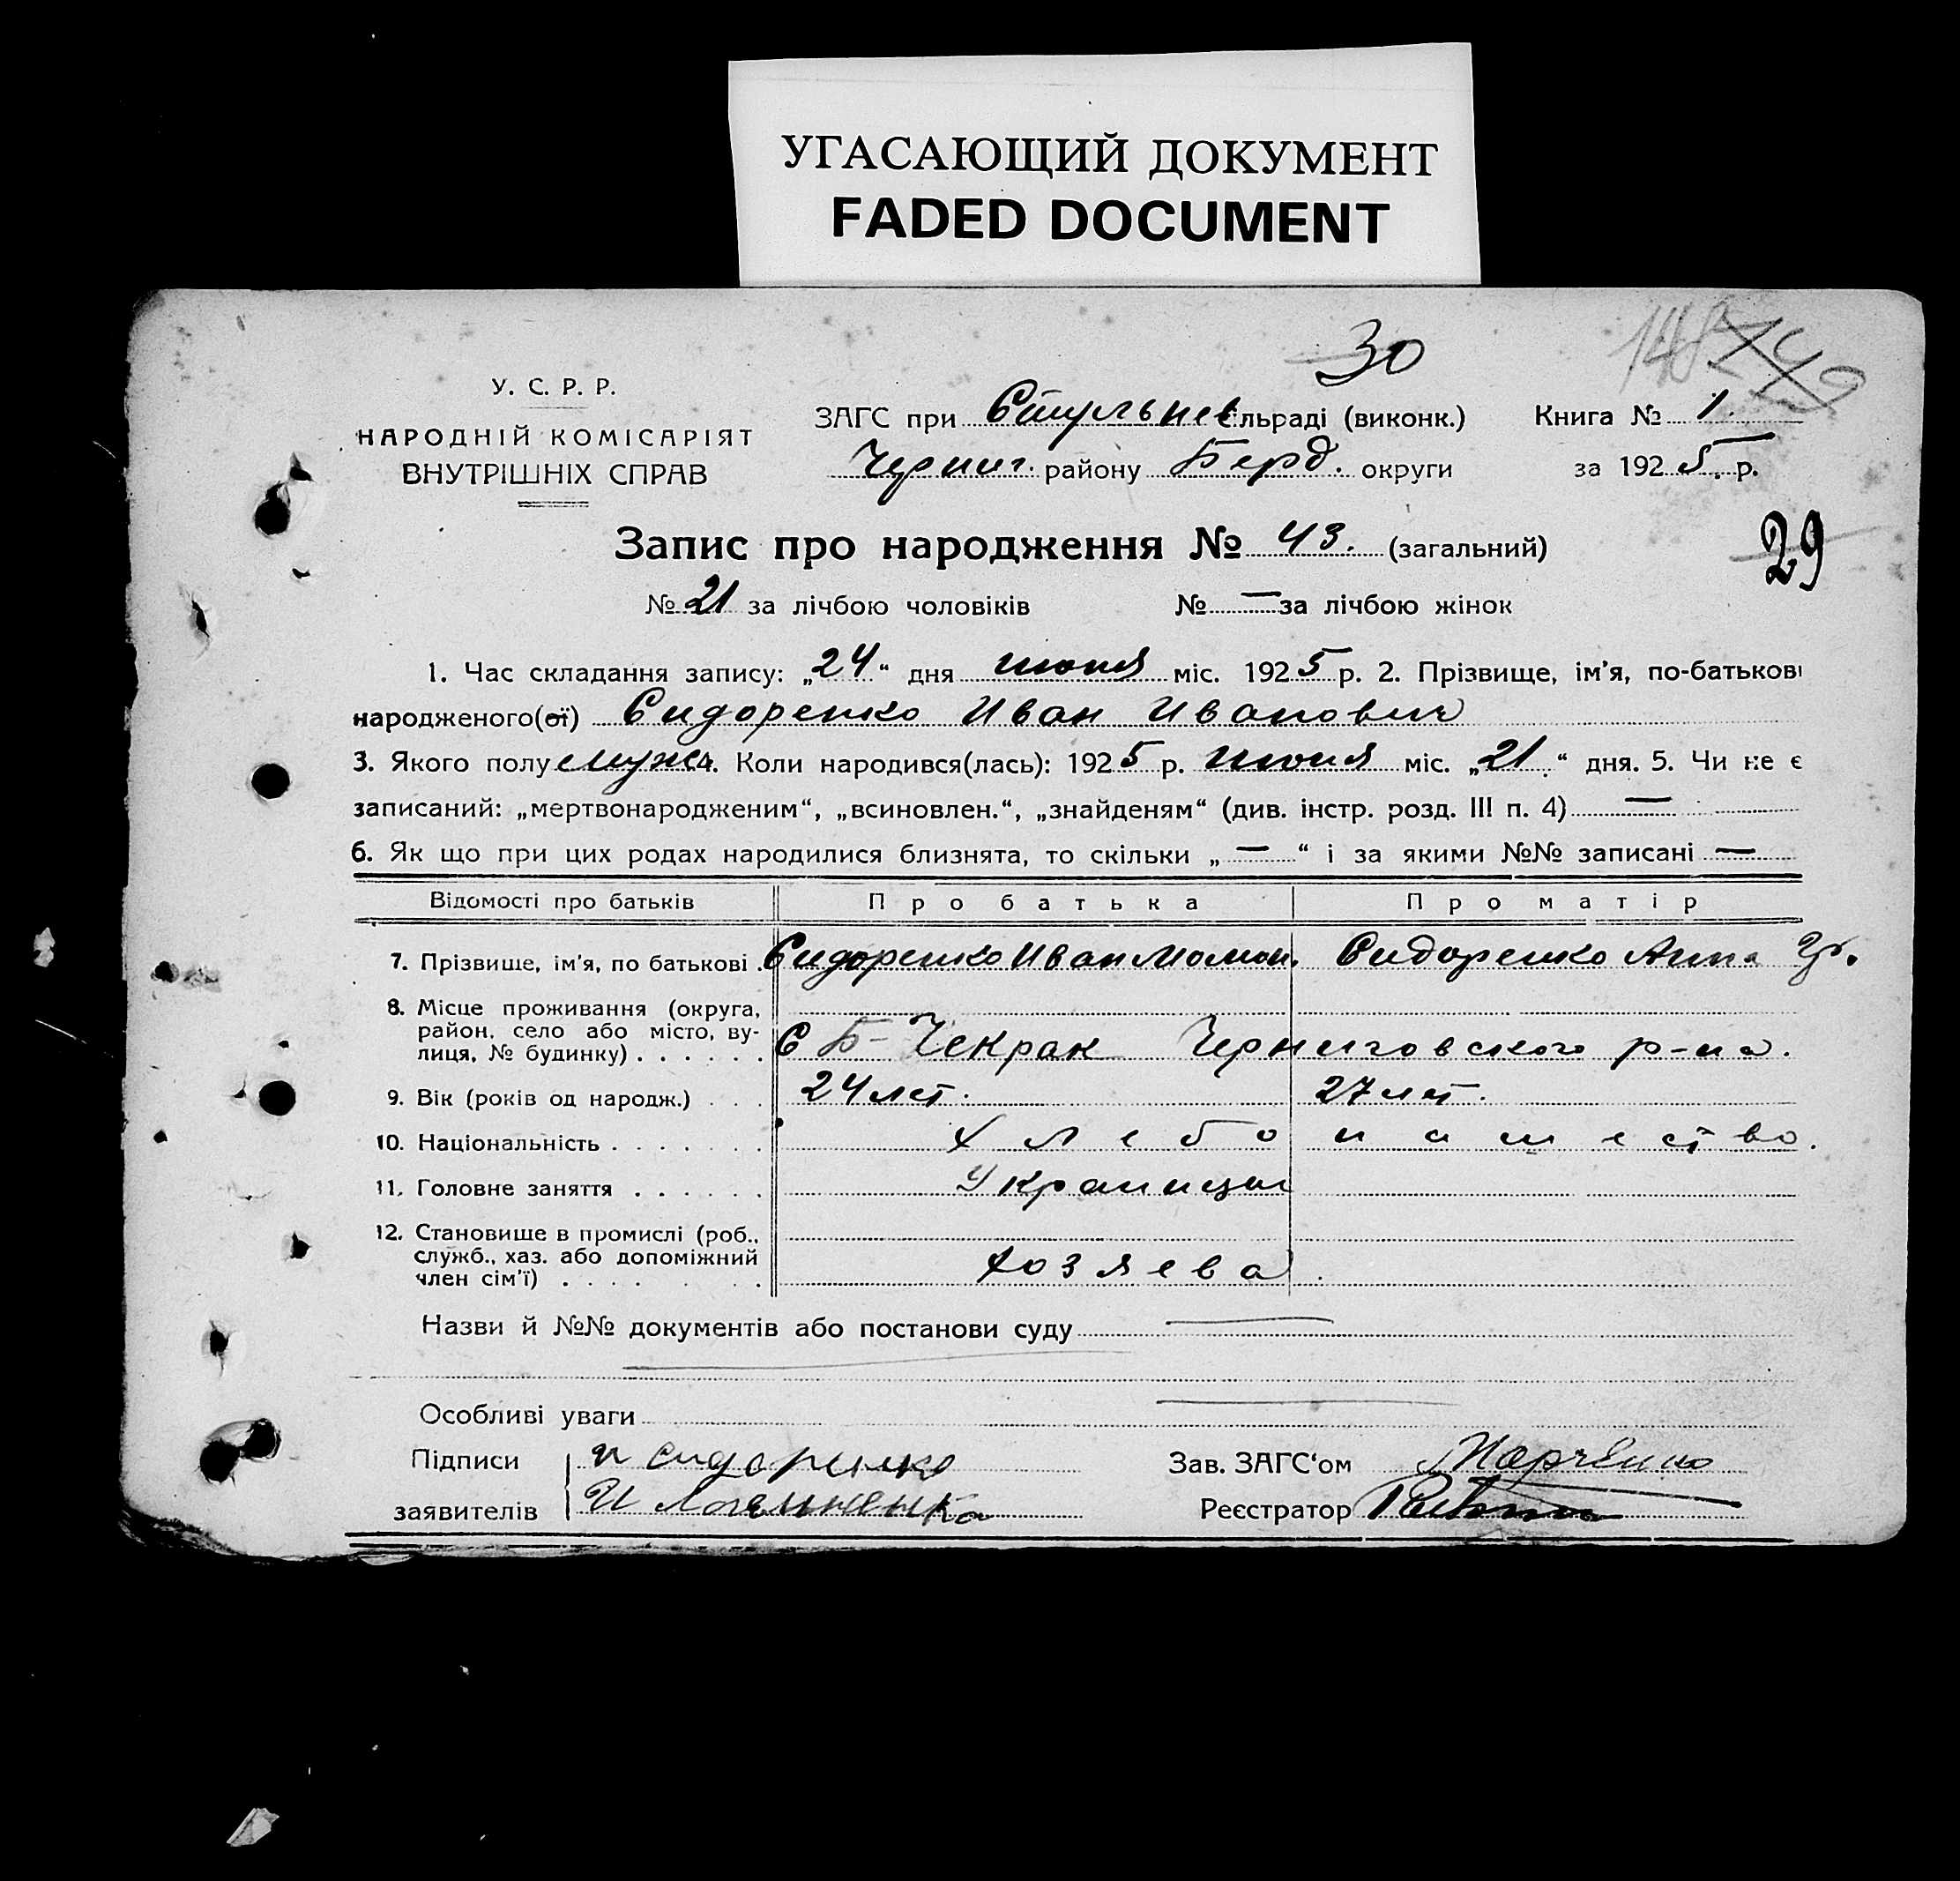 УГАСАЮЩИЙ ДОКУМЕНТ
FADED DOCUMENT
30
У. С. Р. Р.
НАРОДНІЙ КОМІСАРІЯТ
ВНУТРІШНІХ СПРАВ
ЗАГС при Стульнев сільраді (виконк.)
Черниг. району Берд. округи
Книга № 1.
за 1925 р.
29
Запис про народження № 43. (загальний)
№ 21 за лічбою чоловіків № — за лічбою жінок
1. Час складання запису: „24“ дня июня міс. 1925 р. 2. Прізвище, ім'я, по-батькові
народженого(ої) Сидоренко Иван Иванович
3. Якого полу мужс. 4. Коли народився(лась): 1925 р. Июня міс. „21“ дня. 5. Чи не є
записаний: „мертвонародженим“, „всиновлен.“, „знайденям“ (див. інстр. розд. III п. 4) —
6. Як що при цих родах народилися близнята, то скільки „—“ і за якими №№ записані —
Відомості про батьків Про батька Про матір
7. Прізвище, ім'я, по батькові . Сидоренко Иван Мамон. Сидоренко Анна Гр.
8. Місце проживання (округа,
район, село або місто, ву-
лиця, № будинку) . . . . . . С Б- Чекрак Черниговского р-на.
9. Вік (років од народж.) . . . 24 лет. 27 лет.
10. Національність . . . . . . . Хлебопашество.
11. Головне заняття . . . . . . Украинцы
12. Становище в промислі (роб.,
служб., хаз. або допоміжний
член сім'ї) . . . . . . . . . Хозяева.
Назви й №№ документів або постанови суду —
Особливі уваги —
Підписи и Сидоренко
заявителів И
Зав. ЗАГС'ом Марченко
Реєстратор